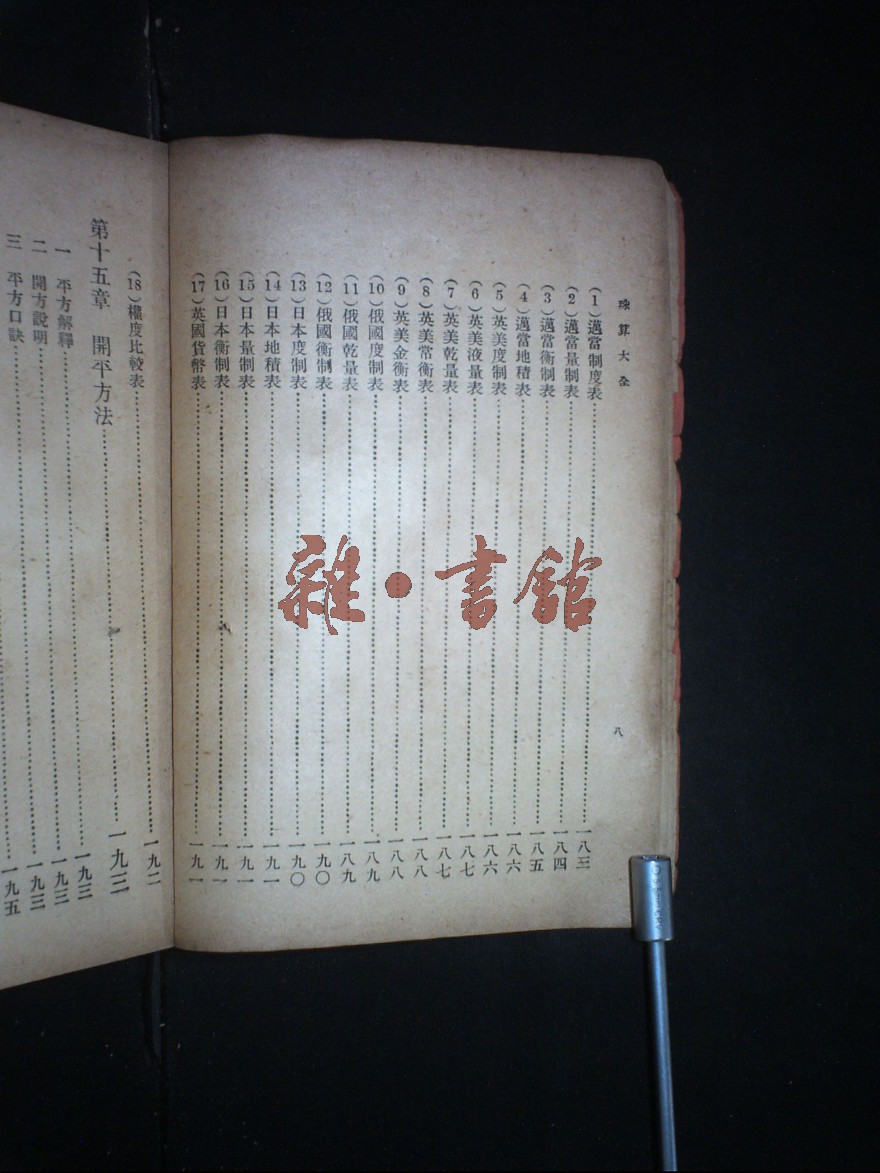 珠算大全
八
(1)邁當制度表……一八三
(2)邁當量制表……一八四
(3)邁當衡制表……一八五
(4)邁當地積表……一八六
(5)英美度制表……一八六
(6)英美液量表……一八七
(7)英美乾量表……一八七
(8)英美常衡表……一八八
(9)英美金衡表……一八八
(10)俄國度制表……一八九
(11)俄國乾量表……一八九
(12)俄國衡制表……一九〇
(13)日本度制表……一九〇
(14)日本地積表……一九一
(15)日本量制表……一九一
(16)日本衡制表……一九一
(17)英國貨幣表……一九一
(18)權度比較表……一九二
第十五章 開平方法……一九三
一 平方解釋……一九三
二 開方說明……一九三
三 平方口訣……一九五
雜·書館